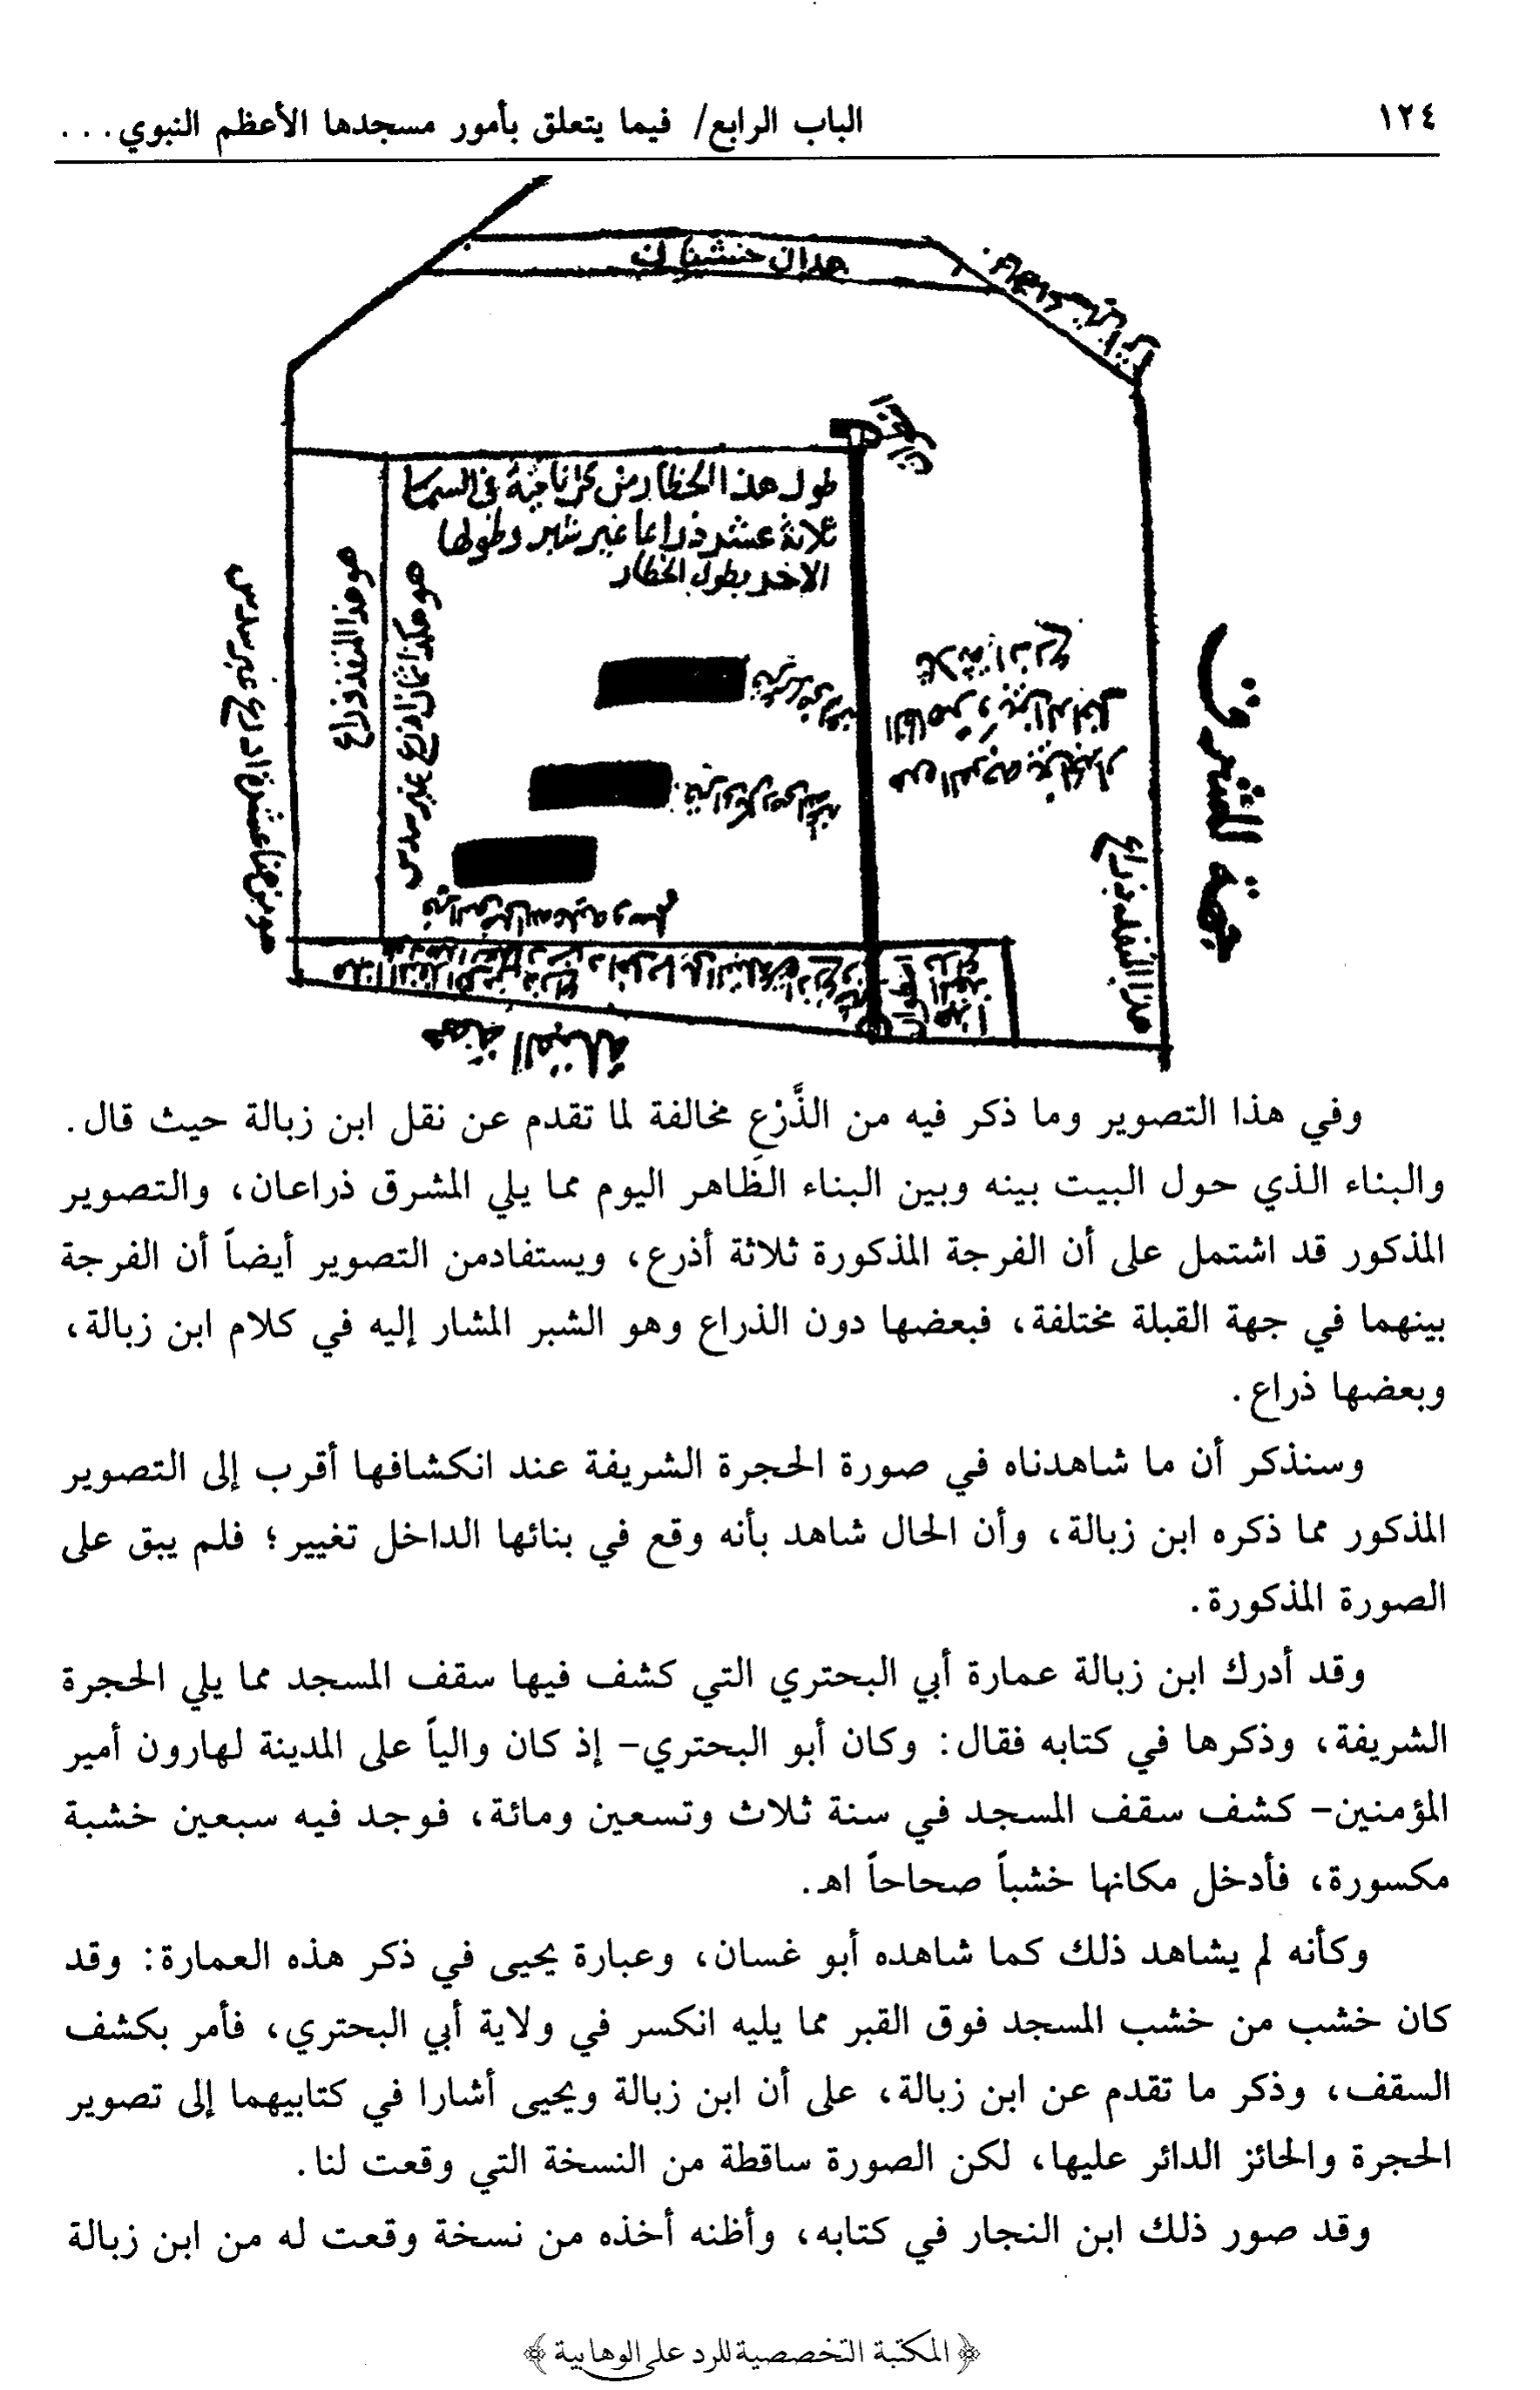 ١٢٤
الباب الرابع/ فيما يتعلق بأمور مسجدها الأعظم النبوي...
هذان خشبتان
طول هذا الحظار من كل ناحية في السما
ثلاثة عشر ذراعا غير شبر وطولها
الاخر بطول الحظار
هو هذا المنفذ ذراع
هو هكذا ثمان اذرع غير سدس
هو من هنا عشرة اذرع غير سدس
ثلاثة اذرع
الظاهر وبين الداخل
هذه الفرجة بين الجدار
جهة المشرق
قبر النبي صلى الله عليه وسلم
جهة القبلة
وفي هذا التصوير وما ذكر فيه من الذَّرْعِ مخالفة لما تقدم عن نقل ابن زبالة حيث قال.
والبناء الذي حول البيت بينه وبين البناء الظاهر اليوم مما يلي المشرق ذراعان، والتصوير
المذكور قد اشتمل على أن الفرجة المذكورة ثلاثة أذرع، ويستفادمن التصوير أيضاً أن الفرجة
بينهما في جهة القبلة مختلفة، فبعضها دون الذراع وهو الشبر المشار إليه في كلام ابن زبالة،
وبعضها ذراع.
وسنذكر أن ما شاهدناه في صورة الحجرة الشريفة عند انكشافها أقرب إلى التصوير
المذكور مما ذكره ابن زبالة، وأن الحال شاهد بأنه وقع في بنائها الداخل تغيير؛ فلم يبق على
الصورة المذكورة.
وقد أدرك ابن زبالة عمارة أبي البحتري التي كشف فيها سقف المسجد مما يلي الحجرة
الشريفة، وذكرها في كتابه فقال: وكان أبو البحتري- إذ كان والياً على المدينة لهارون أمير
المؤمنين- كشف سقف المسجد في سنة ثلاث وتسعين ومائة، فوجد فيه سبعين خشبة
مكسورة، فأدخل مكانها خشباً صحاحاً اهـ.
وكأنه لم يشاهد ذلك كما شاهده أبو غسان، وعبارة يحيى في ذكر هذه العمارة: وقد
كان خشب من خشب المسجد فوق القبر مما يليه انكسر في ولاية أبي البحتري، فأمر بكشف
السقف، وذكر ما تقدم عن ابن زبالة، على أن ابن زبالة ويحيى أشارا في كتابيهما إلى تصوير
الحجرة والحائز الدائر عليها، لكن الصورة ساقطة من النسخة التي وقعت لنا.
وقد صور ذلك ابن النجار في كتابه، وأظنه أخذه من نسخة وقعت له من ابن زبالة
﴿المكتبة التخصصية للرد على الوهابية﴾